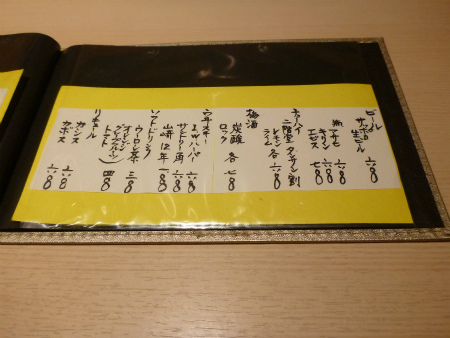 ビール
サッポロ生ビール 六八〇
瓶 アサヒ 六八〇
キリン 六八〇
エビス 七八〇
二階堂 タンサン割
レモン
ライム 各六八〇
梅酒
炭酸
ロック 各七八〇
ウイスキー
I.W.ハーパー 六八〇
サントリー角 六八〇
山崎12年 一八〇
ソフトドリンク
ウーロン茶 三八〇
オレンジ
グレープフルーツ
トマト 四八〇
リキュール
カシス 六八〇
カボス 六八〇